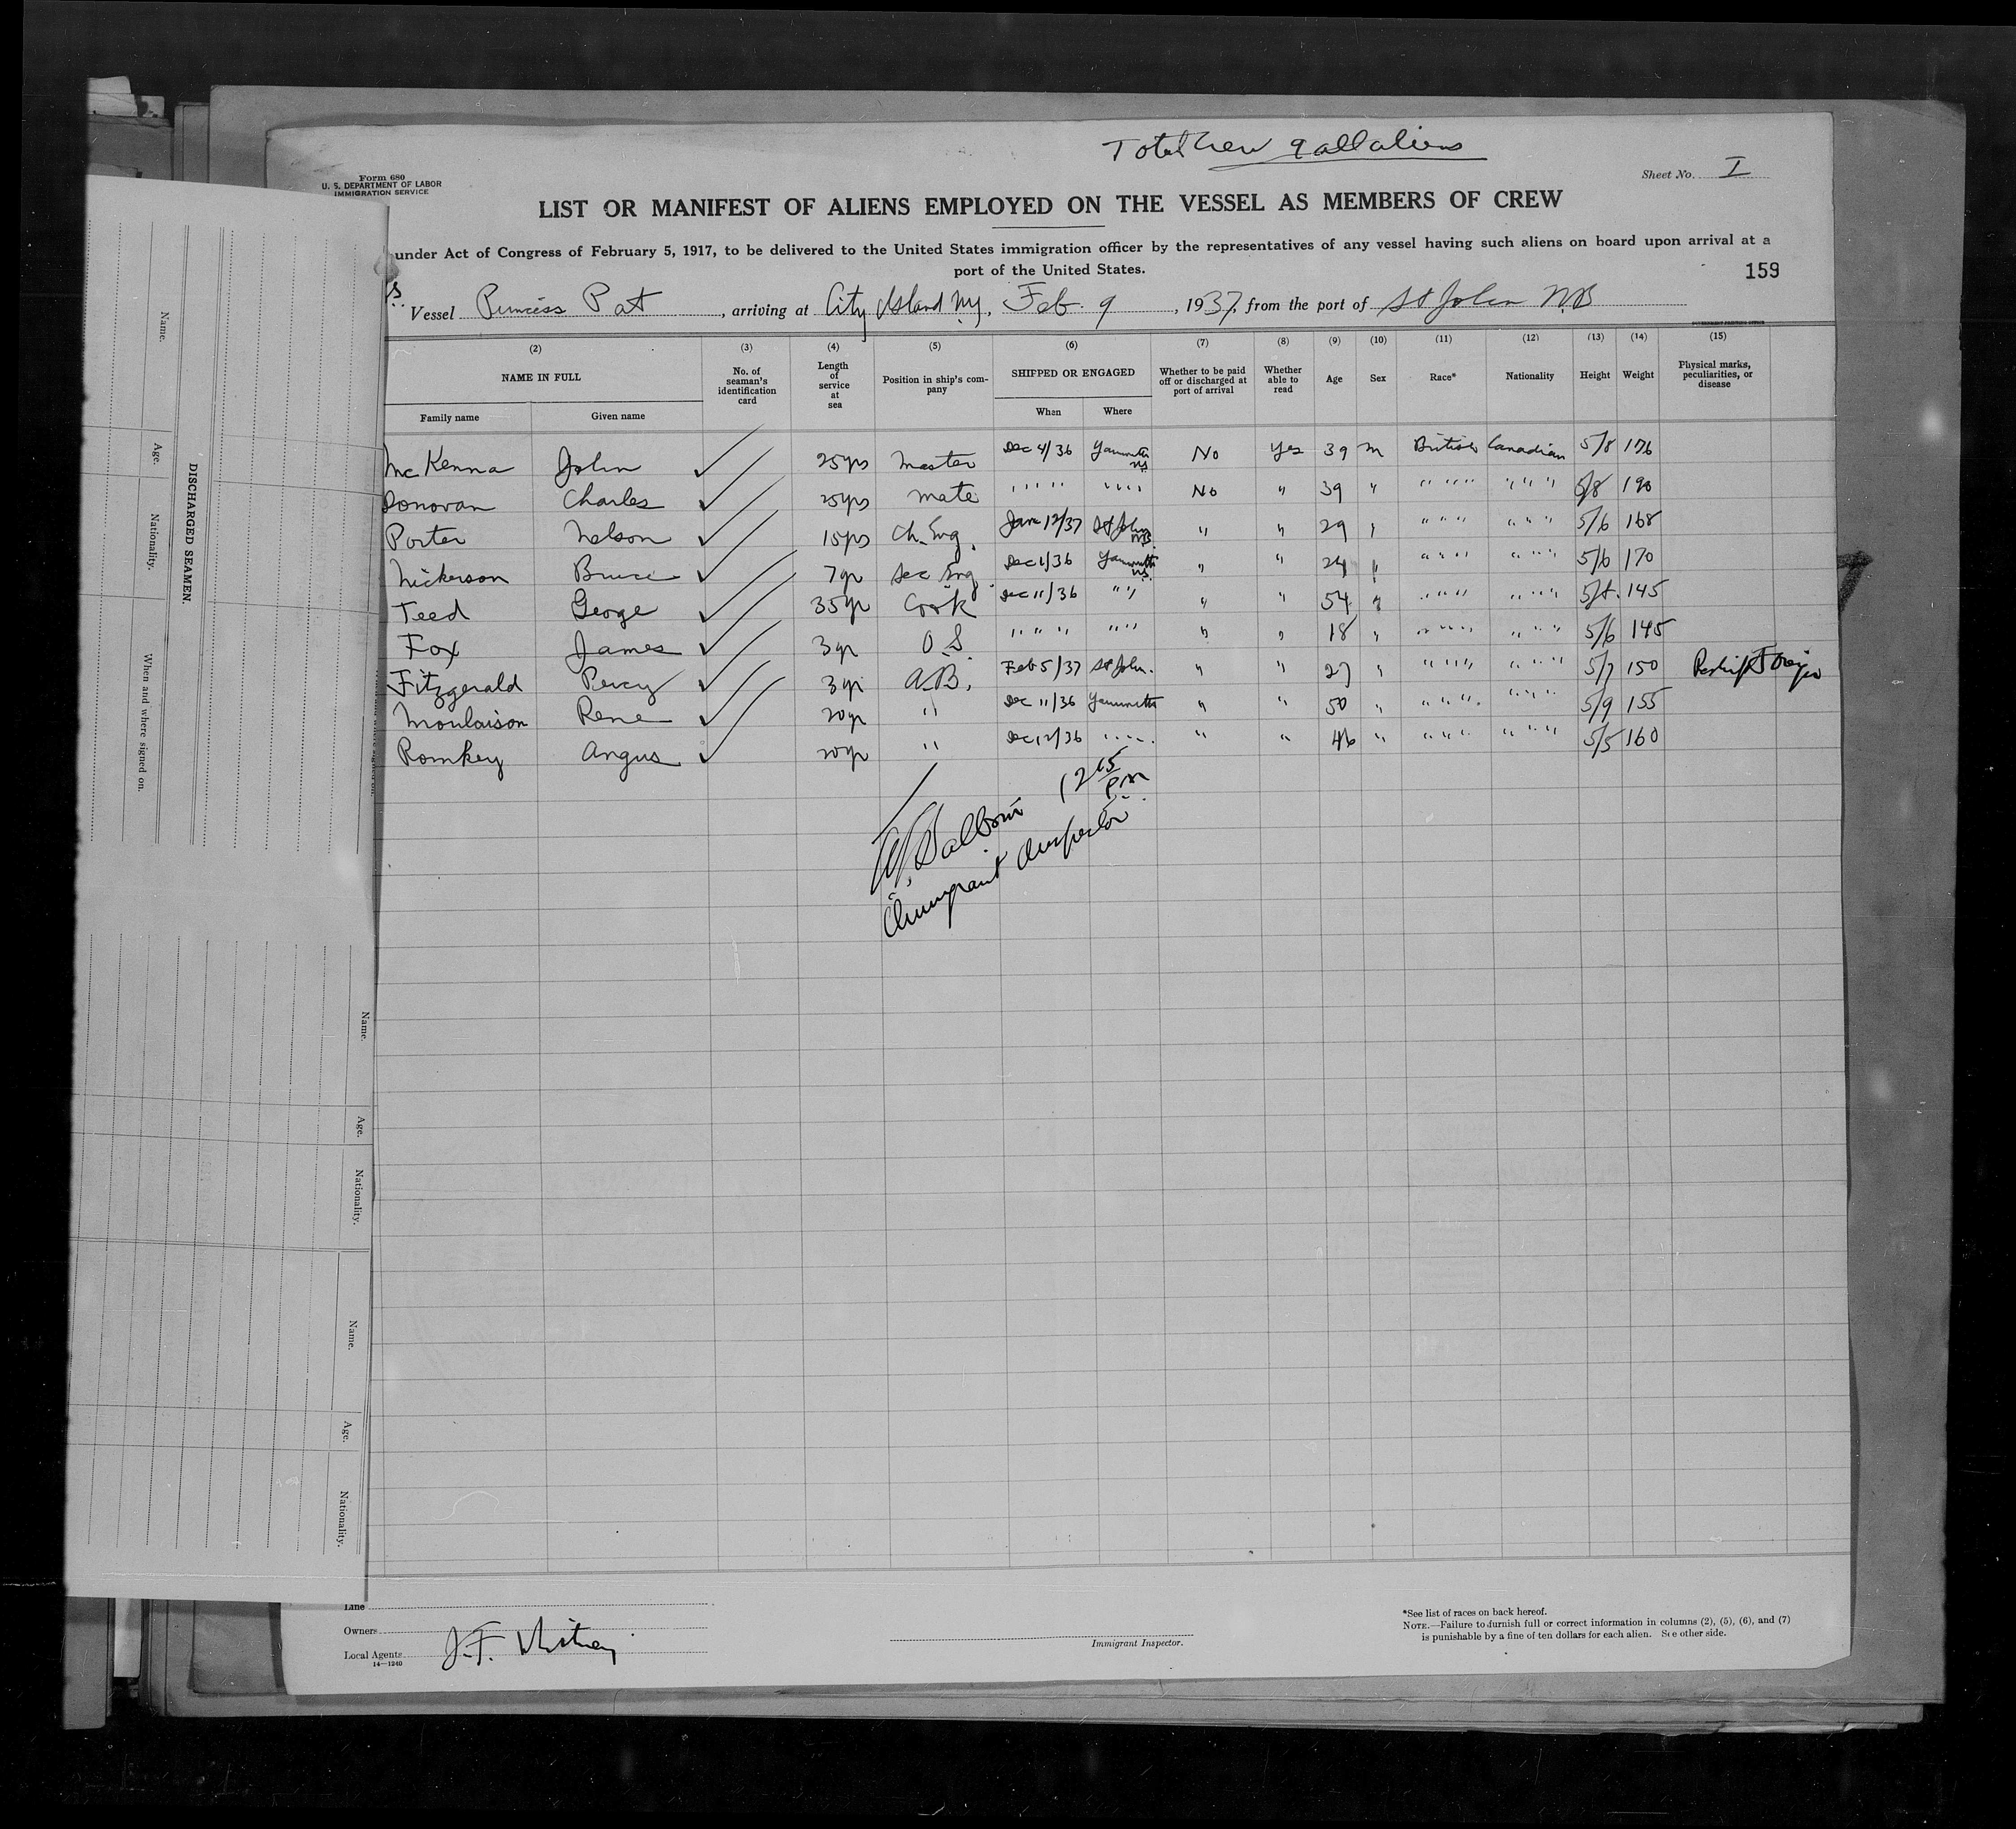 Total Crew 9 all aliens
Form 680
U. S. DEPARTMENT OF LABOR
IMMIGRATION SERVICE
Sheet No. I
LIST OR MANIFEST OF ALIENS EMPLOYED ON THE VESSEL AS MEMBERS OF CREW
under Act of Congress of February 5, 1917, to be delivered to the United States immigration officer by the representatives of any vessel having such aliens on board upon arrival at a
port of the United States.
159
Vessel Princess Pat, arriving at City Island NY, Feb. 9, 1937, from the port of St John NB
(2) (3) (4) (5) (6) (7) (8) (9) (10) (11) (12) (13) (14) (15)
NAME IN FULL No. of seaman's identification card Length of service at sea Position in ship's company SHIPPED OR ENGAGED Whether to be paid off or discharged at port of arrival Whether able to read Age Sex Race* Nationality Height Weight Physical marks, peculiarities, or disease
Family name Given name When Where
McKenna John ✓ 25yrs Master Dec 4/36 Yarmouth NS No Yes 39 M British Canadian 5/8 176
Donovan Charles ✓ 25yrs Mate " " " " " " No " 39 " " " " " " " 5/8 190
Porter Nelson ✓ 15yrs Ch. Eng. Jan 12/37 St John NB " " 29 " " " " " " " 5/6 168
Nickerson Bruce ✓ 7yr Sec Eng Dec 1/36 Yarmouth NS " " 24 " " " " " " " 5/6 170
Teed George ✓ 35yr Cook Dec 11/36 " " " " 54 " " " " " " " 5/8 145
Fox James ✓ 3yr O.S. " " " " " " " 18 " " " " " " " 5/6 145
Fitzgerald Percy ✓ 3yr A.B. Feb 5/37 St John. " " 27 " " " " " " " 5/7 150
Moulaison Rene ✓ 20yr " Dec 11/36 Yarmouth " " 50 " " " " " " " 5/9 155
Romkey Angus ✓ 20yr " Dec 12/36 " " " " 46 " " " " " " " 5/5 160
12 15 PM
Immigrant Inspector
Line
Owners
Local Agents J.F. Whitney
14—1240
Immigrant Inspector.
*See list of races on back hereof.
NOTE.—Failure to furnish full or correct information in columns (2), (5), (6), and (7)
is punishable by a fine of ten dollars for each alien. See other side.
DISCHARGED SEAMEN.
Name. Age. Nationality. When and where signed on.
Name. Age. Nationality.
Name. Age. Nationality.